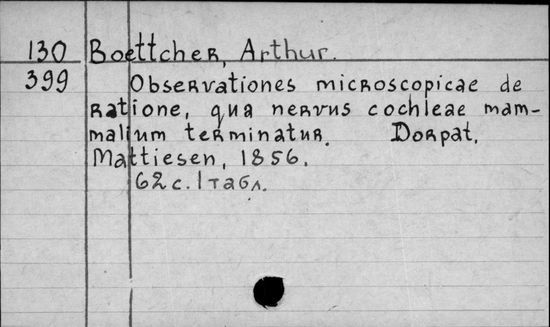 130 Boettcher, Arthur.
399 Observationes microscopicae de
ratione, qua nervus cochleae mam-
malium terminatur. Dorpat,
Mattiesen, 1856.
62 с. 1 табл.